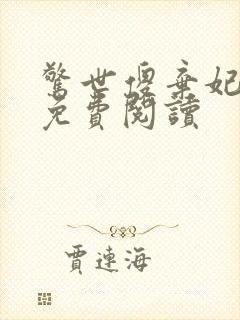 驚世傻棄妃
免費閱讀
賈連海